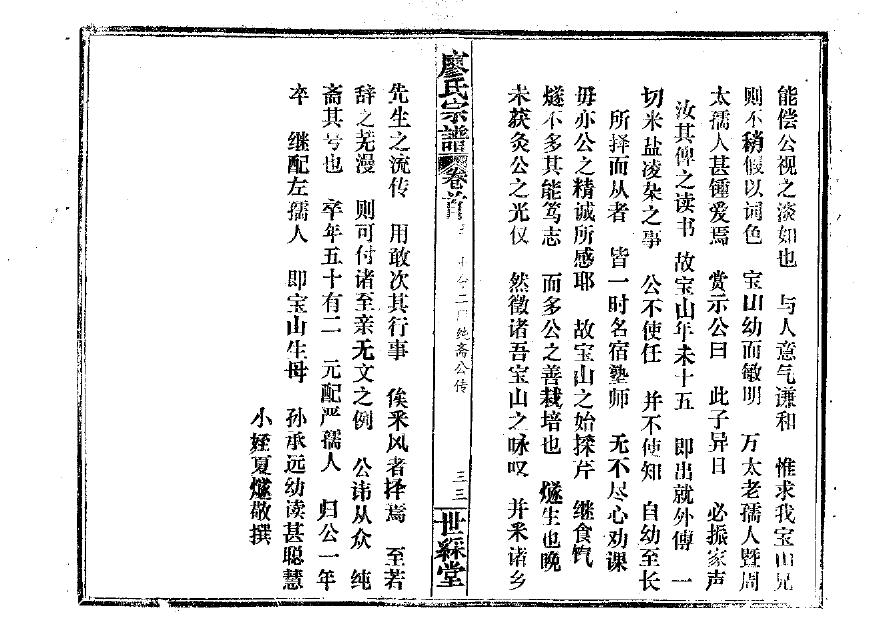 能偿公视之淡如也 与人意气谦和 惟求我宝山兄
则不稍假以词色 宝山幼而敏明 万太老孺人暨周
太孺人甚锺爱焉 赏示公曰 此子异日 必振家声
汝其俾之读书 故宝山年未十五 即出就外傅 一
切米盐凌杂之事 公不使任 并不使知 自幼至长
所择而从者 皆一时名宿塾师 无不尽心劝课
毋亦公之精诚所感耶 故宝山之始採芹 继食饩
燧不多其能笃志 而多公之善栽培也 燧生也晚
未获灸公之光仪 然徵诸吾宝山之咏叹 并釆诸乡
廖氏宗譜 卷首
二 纯斋公传
三三
世綵堂
先生之流传 用敢次其行事 俟釆风者择焉 至若
辞之芜漫 则可付诸至亲无文之例 公讳从众 纯
斋其号也 卒年五十有二 元配严孺人 归公一年
卒 继配左孺人 即宝山生母 孙承远幼读甚聪慧
小姪夏燧敬撰